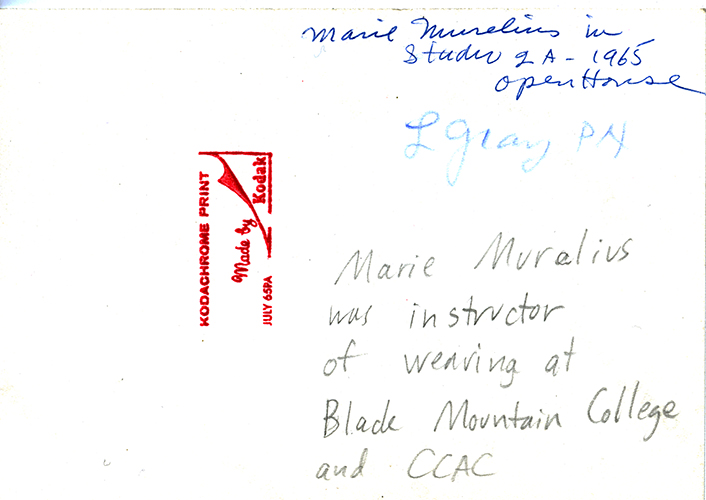 Marie Muralius in
Studio 2A - 1965
open House
L Gray PM
KODACHROME PRINT
Made by Kodak
JULY 65PA
Marie Muralius
was instructor
of weaving at
Black Mountain College
and CCAC